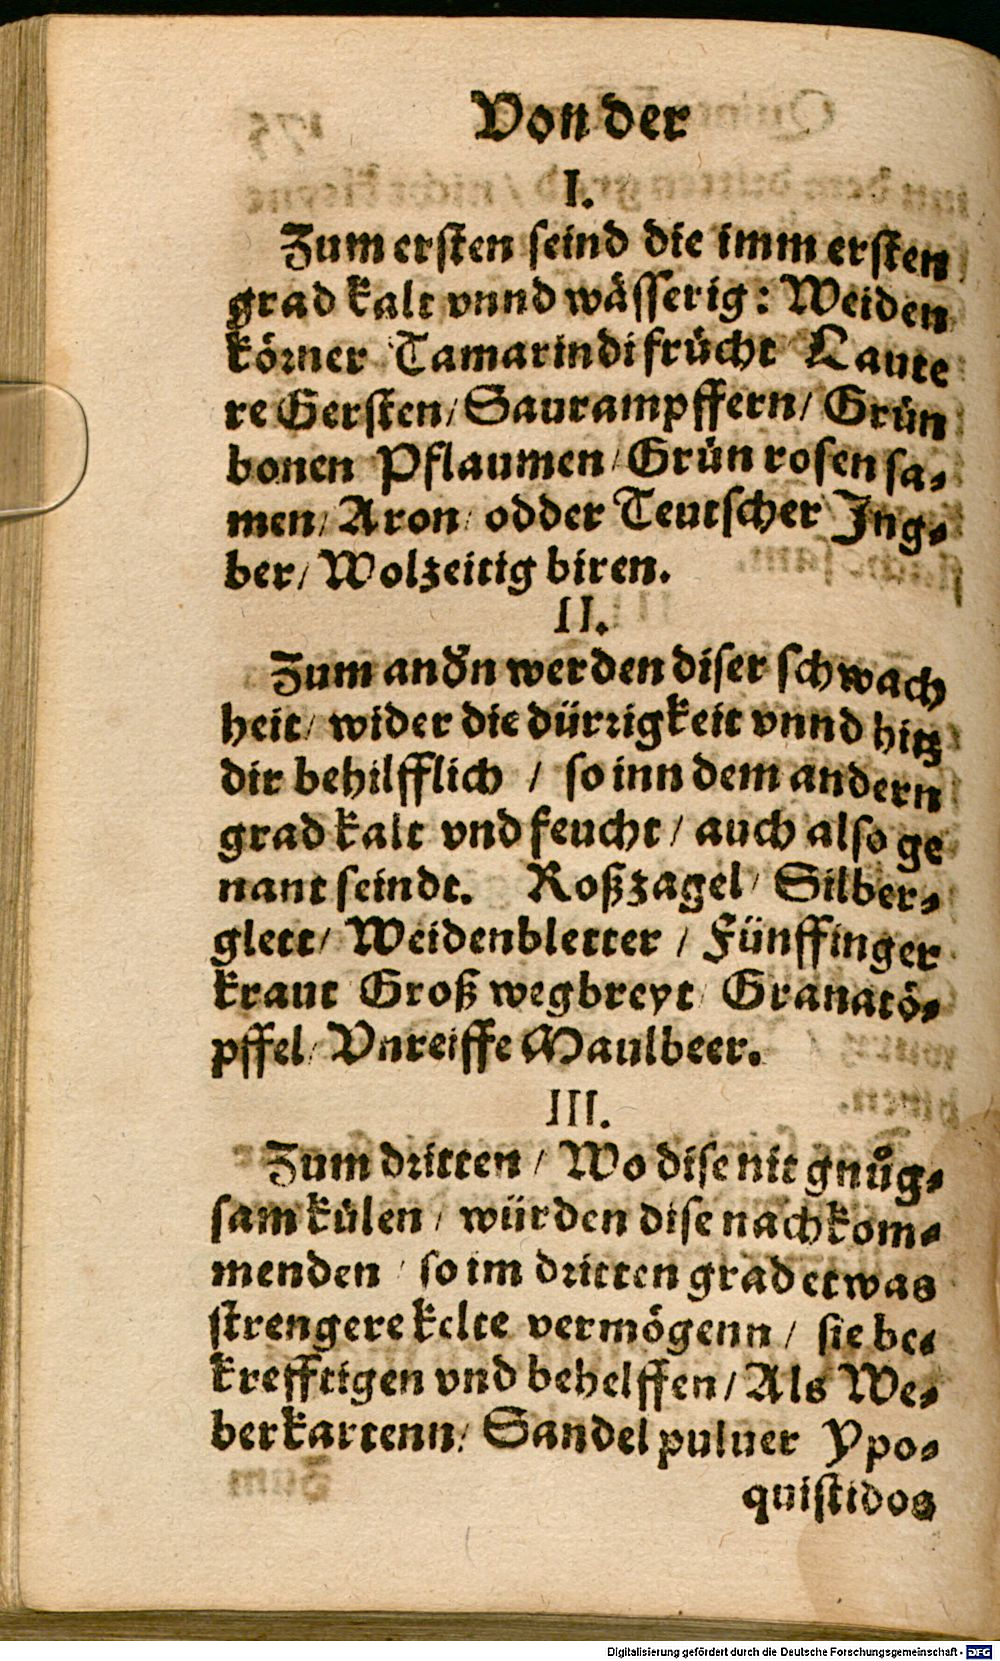 Von der
I.
Zum ersten seind die imm ersten
grad kalt vnnd wässerig: Weiden
körner Tamarindi frücht Laute
re Gersten/ Saurampffern/ Grün
bonen Pflaumen/ Grün rosen sa⸗
men/ Aron/ odder Teutscher Jng⸗
ber/ Wolzeitig biren.
II.
Zum andn̄ werden diser schwach
heit/ wider die dürrigkeit vnnd hitz
dir behilfflich / so inn dem andern
grad kalt vnd feucht/ auch also ge
nant seindt. Roßzagel/ Silber⸗
glett/ Weidenbletter / Fünffinger
kraut Groß wegbreyt/ Granatö⸗
pffel/ Vnreiffe Maulbeer.
III.
Zum dritten / Wo dise nit gnůg⸗
sam külen/ würden dise nachkom⸗
menden / so im dritten grad etwas
strengere kelte vermögenn/ sie be⸗
krefftigen vnd behelffen/ Als We⸗
berkartenn/ Sandel puluer Ypo⸗
quistidos
Digitalisierung gefördert durch die Deutsche Forschungsgemeinschaft - DFG